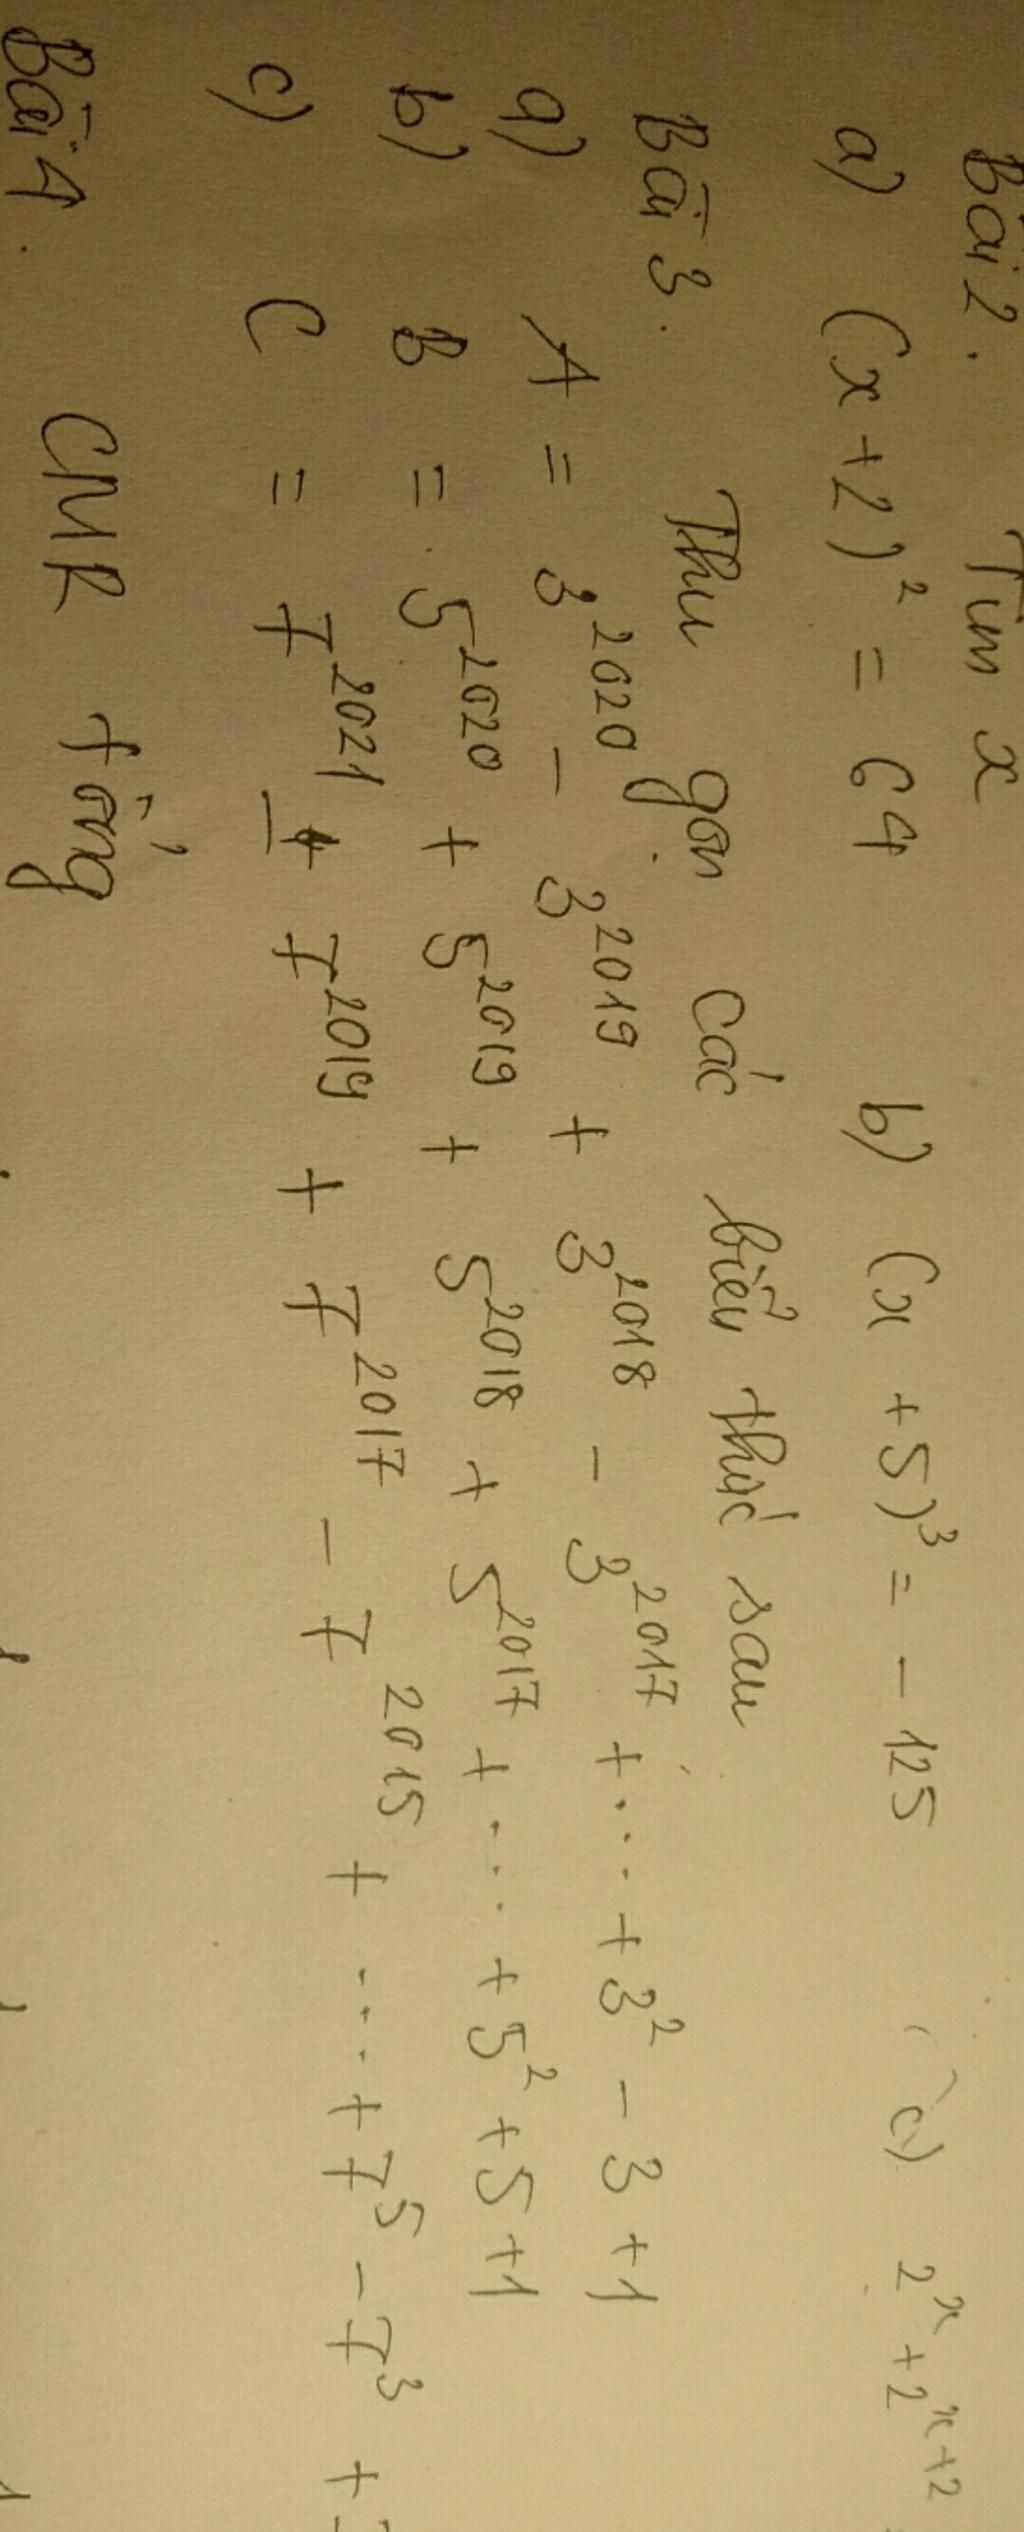 Bài 2. Tìm x
a) (x+2)² = 64 b) (x+5)³ = -125 c) 2ˣ + 2ˣ⁺²
Bài 3. Thu gọn các biểu thức sau
a) A = 3²⁰²⁰ - 3²⁰¹⁹ + 3²⁰¹⁸ - 3²⁰¹⁷ + ... + 3² - 3 + 1
b) B = 5²⁰²⁰ + 5²⁰¹⁹ + 5²⁰¹⁸ + 5²⁰¹⁷ + ... + 5² + 5 + 1
c) C = 7²⁰²¹ - 7²⁰¹⁹ + 7²⁰¹⁷ - 7²⁰¹⁵ + ... + 7⁵ - 7³ +
Bài 4. CMR tổng